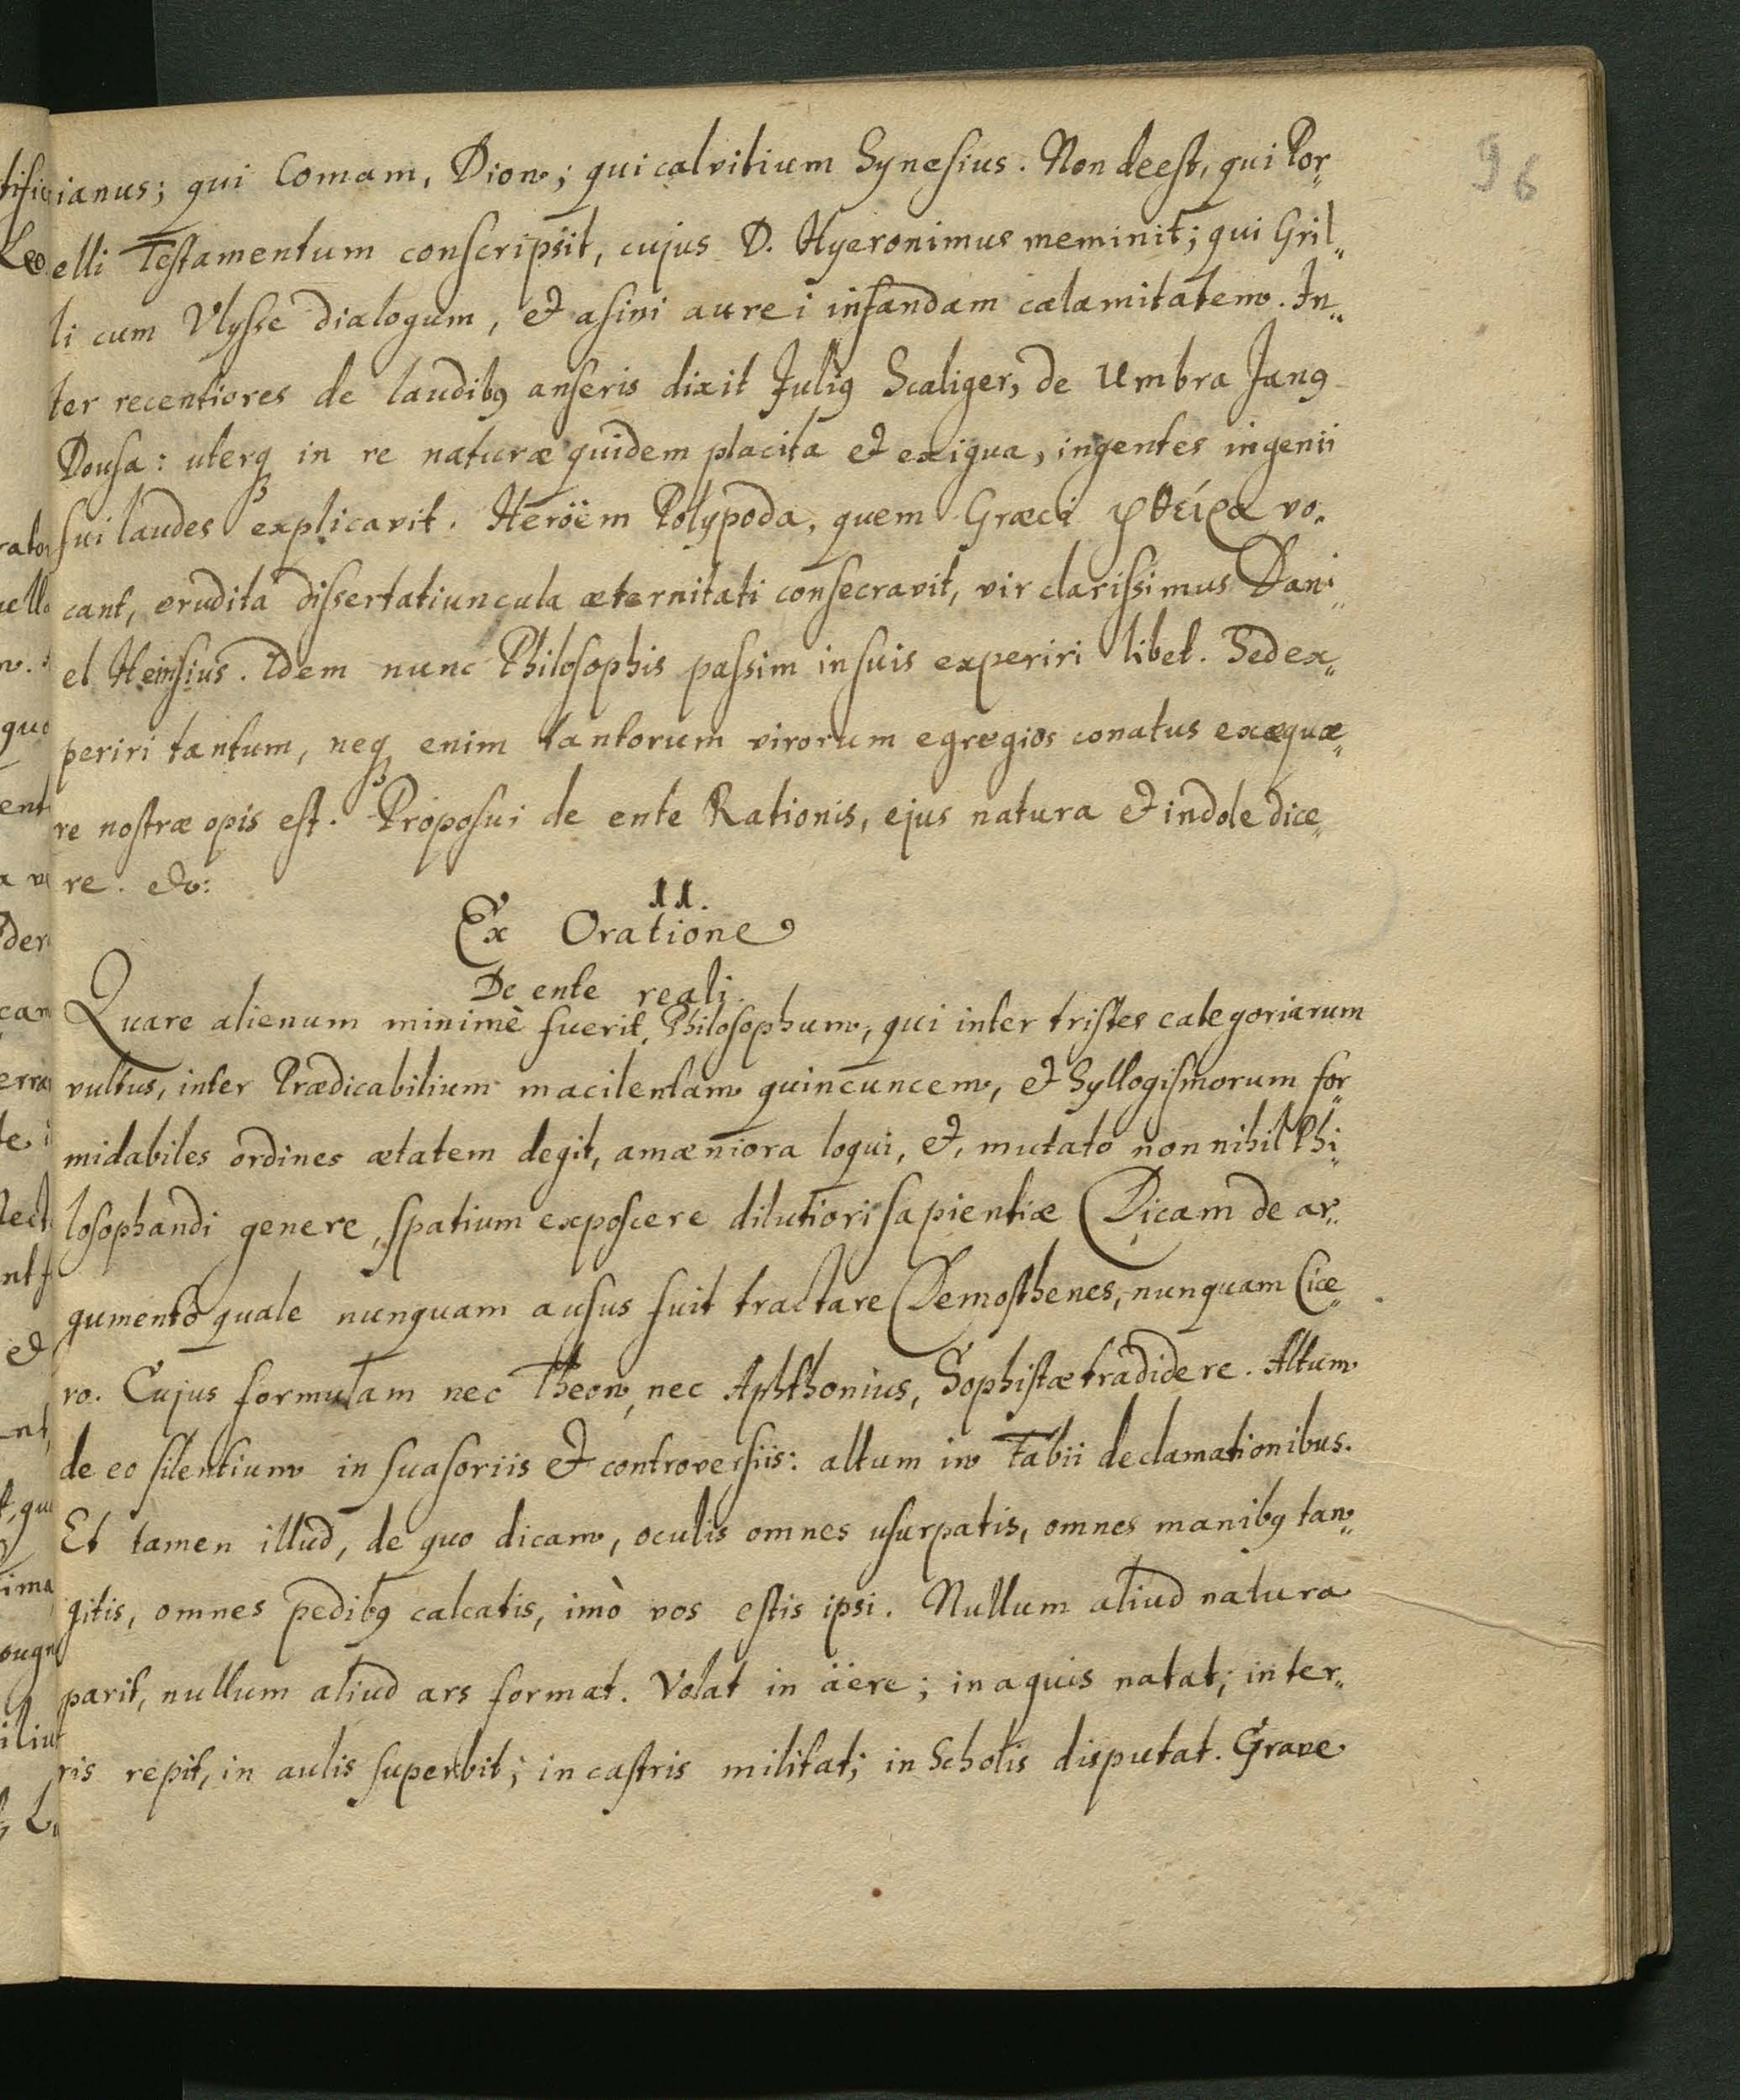 96
ianus; qui Comam, Dion; qui calvitium Synesius. Non deest, qui Por„
elli Testamentum conscripsit, cujus D. Hyeronimus meminit; qui Gril„
li cum Ulysse dialogum, et asini aurei infandam calamitatem. In„
ter recentiores de laudibꝰ anseris dixit Juliꝰ Scaliger, de Umbra Janꝰ
Dousa: uterqꝫ in re naturæ quidem placita et exigua, ingentes ingenii
sui laudes explicavit. Heröem Polypoda, quem Græci φθείρα vo„
cant, erudita dissertatiuncula æternitati consecravit, vir clarissimus Dani„
el Heinsius. Idem nunc Philosophis passim in suis experiri libet. Sed ex„
periri tantum, neqꝫ enim tantorum virorum egregios conatus exæquæ„
re nostræ opis est. Proposui de ente Rationis, ejus natura et indole dice„
re. etc:
11.
Ex Oratione
De ente reali.
Quare alienum minimè fuerit, Philosophum, qui inter tristes categoriarum
vultus, inter Prædicabilium macilentam quincuncem, et Syllogismorum for„
midabiles ordines ætatem degit, amæniora loqui, et, mutato non nihil Phi„
losophandi genere, spatium exposcere dilutiori sapientiæ Dicam de ar„
gumento quale nunquam ausus fuit tractare Demosthenes, nunquam Cice„
ro. Cujus formulam nec Theon, nec Aphthonius, Sophistæ tradidere. Altum
de eo silentium in suasoriis et controversiis: altum in Fabii declamationibus.
Et tamen illud, de quo dicam, oculis omnes usurpatis, omnes manibꝰ tan„
gitis, omnes pedibꝰ calcatis, imò vos estis ipsi. Nullum aliud natura
parit, nullum aliud ars format. Volat in äere; in aquis natat; in ter„
ris repit, in aulis superbit; in castris militat; in Scholis disputat. Grave